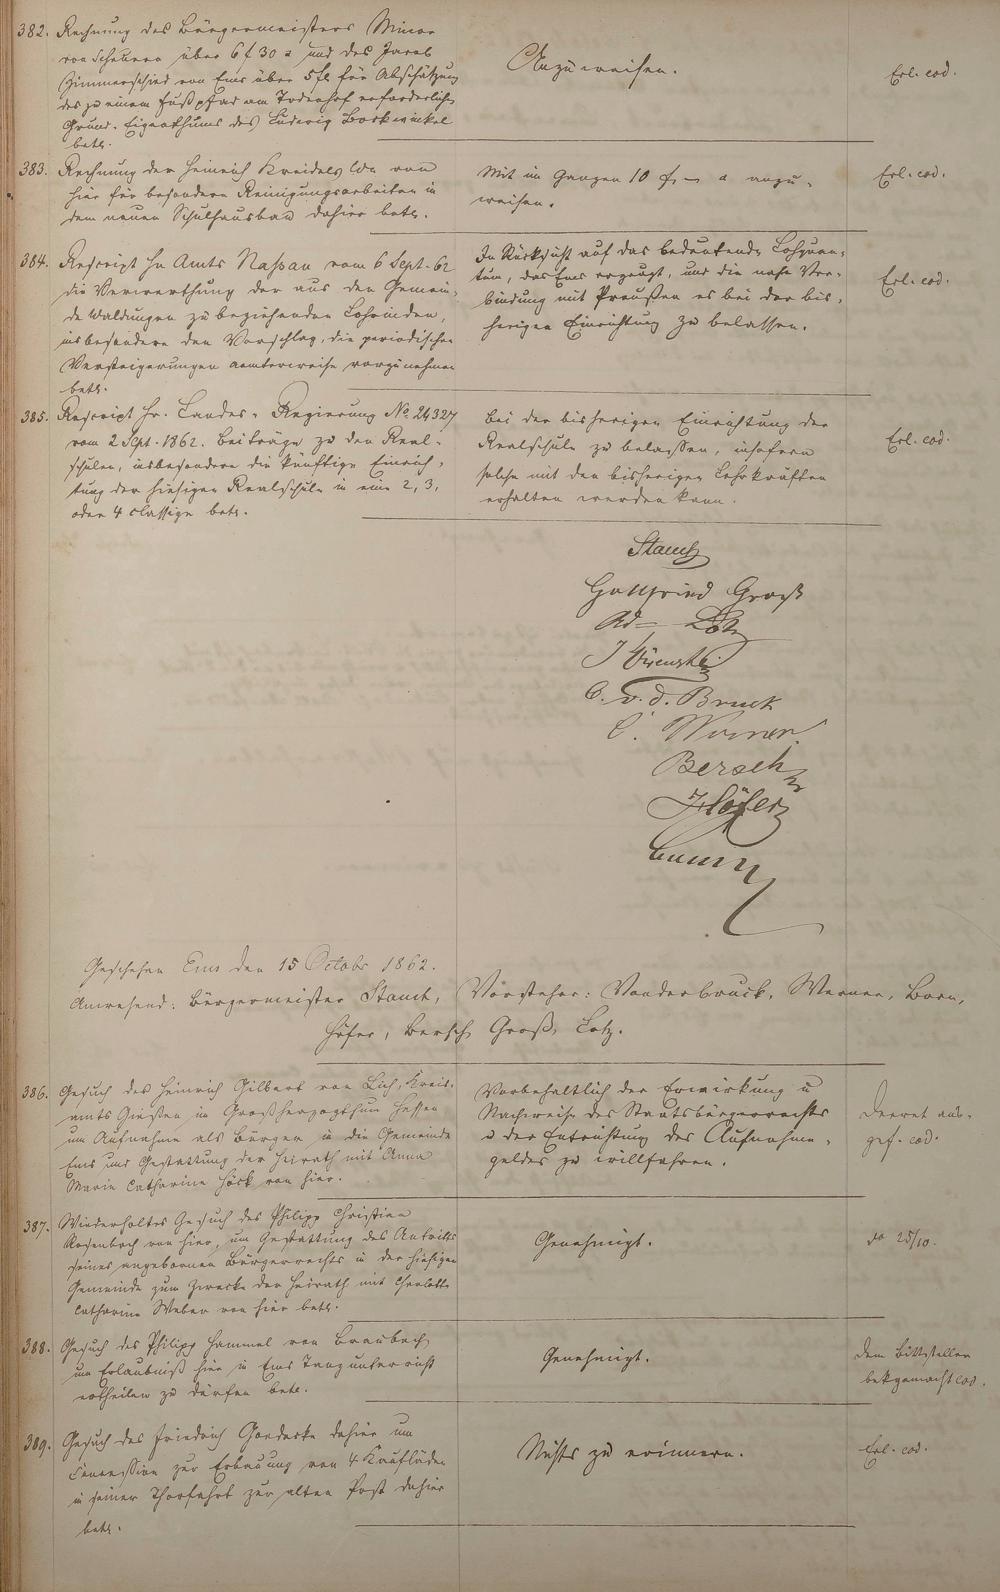 382. Rechnung des Bürgermeisters Minor
von Scheuern über 6 f 30 x und des Jacob
Zimmerschied von Ems über 5 fl für Abschätzung
des zu einem Fußpfad am Todenhof erforderlichen
Grund-Eigenthums des Ludwig Bockwinkel
betr.
Anzuweisen.
Erl. eod.
383. Rechnung der Heinrich Kreidels Wwe von
hier für besondere Reinigungsarbeiten in
dem neuen Schulhausbau dahier betr.
Mit im Ganzen 10 f, – x anzu-
weisen.
Erl. eod.
384. Rescript Hz Amts Naßau vom 6 Sept. 62
die Verwerthung der aus den Gemein-
de Waldungen zu beziehenden Lohrinden,
insbesondere den Vorschlag, die periodischen
Versteigerungen aemterweise vorzunehmen
betr.
In Rücksicht auf das bedeutende Lohquan-
tum, das Ems erzeugt, und die nahe Ver-
bindung mit Preußen es bei der bis-
herigen Einrichtung zu belassen.
Erl. eod.
385. Rescript Hr. Landes-Regierung No. 24327
vom 2 Sept. 1862. Beiträge zu den Real-
schulen, insbesondere die künftige Einrich-
tung der hiesigen Realschule in eine 2, 3,
oder 4 classige betr.
Bei der bisherigen Einrichtung der
Realschule zu belassen, insofern
solche mit den bisherigen Lehrkräften
erhalten werden kann.
Erl. eod.
Stauch
Gottfried Groß
Ad Lotz
C. v. d. Bruck
C. Werner.
Bersch
Höfer
Geschehen Ems den 15 Octobr 1862.
Anwesend: Bürgermeister Stauch, Vorsteher: Vonderbruck, Werner, Born,
Höfer, Bersch, Groß, Lotz.
386. Gesuch des Heinrich Gilbert von Lich, Kreis-
amts Gießen im Großherzogthum Hessen
um Aufnahme als Bürger in die Gemeinde
Ems und Gestattung der Heirath mit Anna
Maria Catharine Höck von hier.
Vorbehaltlich der Erwirkung u
Nachweise des Staatsbürgerrechts
u der Entrichtung des Aufnahme-
geldes zu willfahren.
Decret aus-
gef. eod.
387. Wiederholtes Gesuch des Philipp Christian
Rosenbach von hier, um Gestattung des Antritts
seines angebornen Bürgerrechts in der hiesigen
Gemeinde zum Zwecke der Heirath mit Charlotte
Catharine Weber von hier betr.
Genehmigt.
do 25/10.
388. Gesuch des Philipp Hammel von Braubach
um Erlaubniß hier in Ems Tanzunterricht
ertheilen zu dürfen betr.
Genehmigt.
Dem Bittsteller
bekgemacht eod.
389. Gesuch des Friedrich Goedecke dahier um
Concession zur Erbauung von 4 Kaufläden
in seiner Thorfahrt zur alten Post dahier
betr.
Nichts zu erinnern.
Erl. eod.